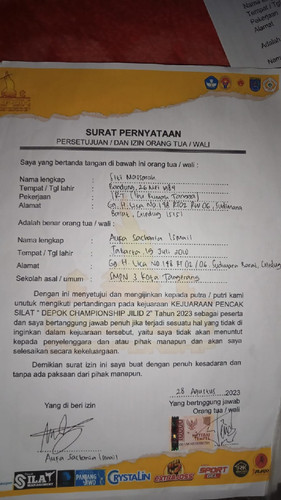 SURAT PERNYATAAN
PERSETUJUAN / DAN IZIN ORANG TUA / WALI
Saya yang bertanda tangan di bawah ini orang tua / wali :
Nama lengkap : Siti Maisaroh
Tempat / Tgl lahir : Bandung, 26 Mei
Pekerjaan : IRT (Ibu Rumah Tangga)
Alamat : Gg. H. Liin No.148 RT02 RW 06, Sudimara
Barat, Ciledug 15151
Adalah benar orang tua / wali :
Nama lengkap : Aufa Sachmia Ismail
Tempat / Tgl lahir : Jakarta, 19 Juli 2010
Alamat : Gg. H. Liin No.148 RT 02 / 06, Sudimara Barat, Ciledug
Sekolah asal / umum : SMPN 3 Kota Tangerang
Dengan ini menyetujui dan mengijinkan kepada putra / putri kami
unutuk mengikuti pertandingan pada kejuaraan KEJUARAAN PENCAK
SILAT " DEPOK CHAMPIONSHIP JILID 2" Tahun 2023 sebagai peserta
dan saya bertanggung jawab penuh jika terjadi sesuatu hal yang tidak di
inginkan dalam kejuaraan tersebut, yaitu saya tidak akan menuntut
kepada penyelenggara dan atau pihak manapun dan akan saya
selesaikan secara kekeluargaan.
Demikian surat izin ini saya buat dengan penuh kesadaran dan
tanpa ada paksaan dari pihak manapun.
28 Agustus 2023
Yang di beri izin
Yang bertnggung jawab
Orang tua / wali
Aufa Sachmia Ismail
SILAT
PADJANG JIWO
CRYSTALIN
SPORT